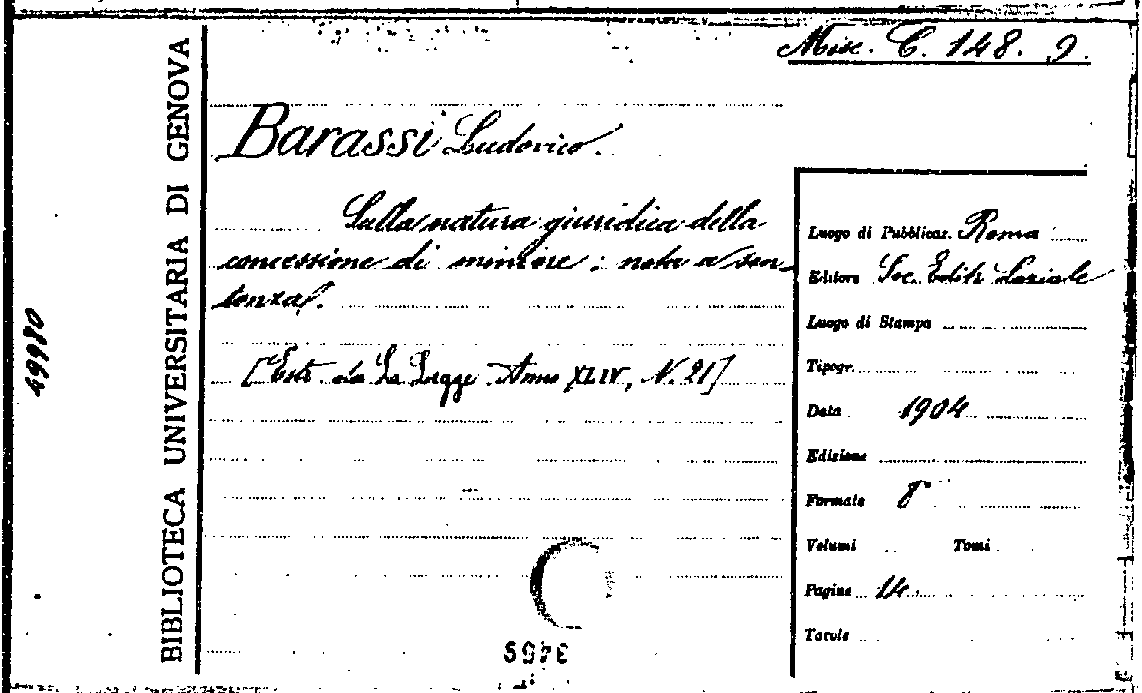 Misc. C. 148. 9.
BIBLIOTECA UNIVERSITARIA DI GENOVA
49980
Barassi Ludovico.
Sulla natura giuridica della
concessione di miniere : nota a sen
tenza.
[Estr. da La Legge Anno XLIV, N. 21]
Luogo di Pubblicaz. Roma
Editore Soc. Editr. Laziale
Luogo di Stampa
Tipogr.
Data 1904
Edizione
Formato 8°
Volumi Tomi
Pagine 14
Tavole